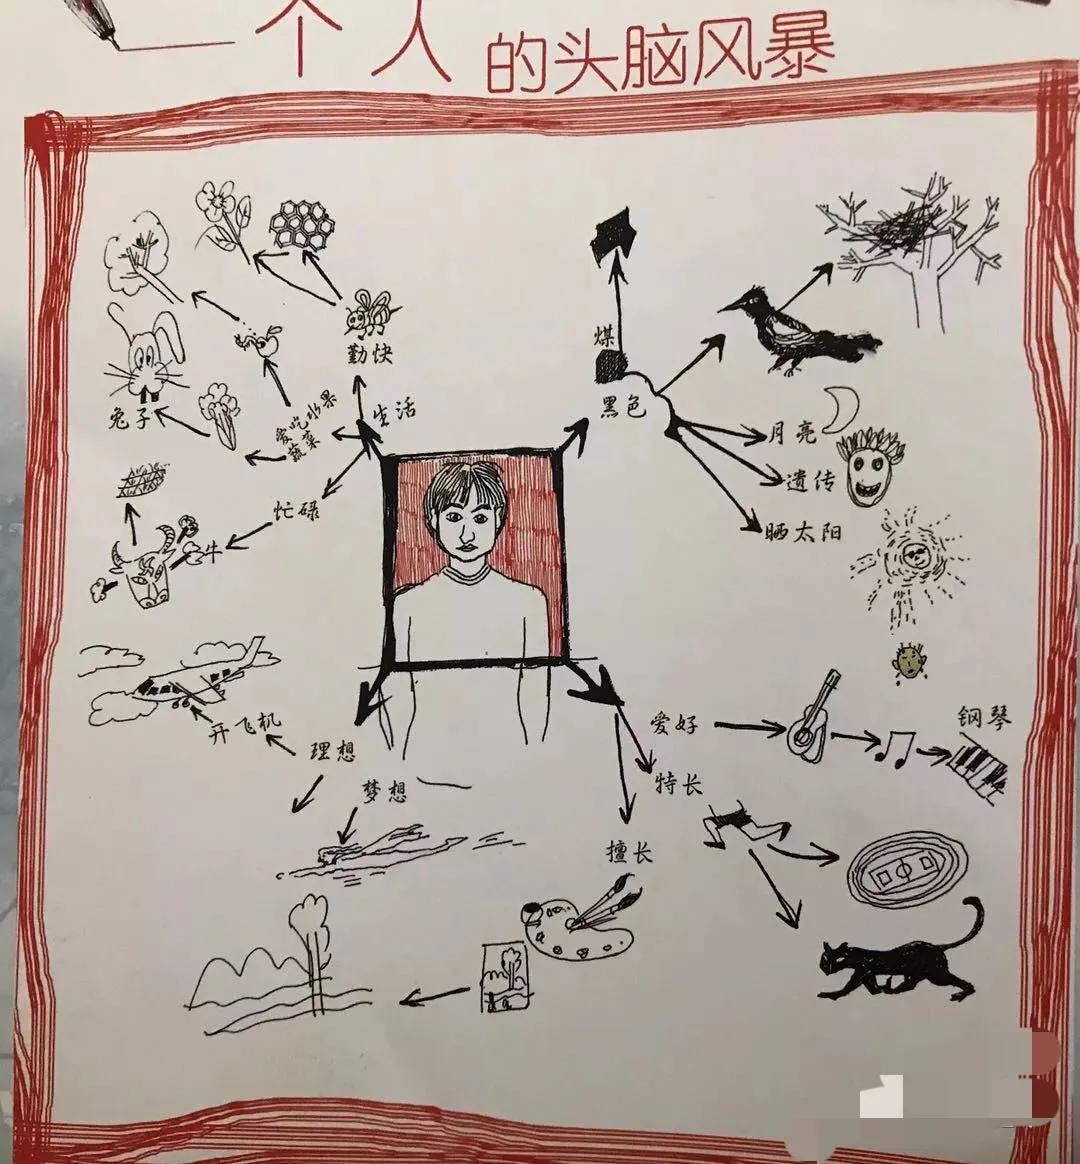 个人的头脑风暴
勤快
兔子
爱吃水果
蔬菜
生活
忙碌
牛
煤
黑色
月亮
遗传
晒太阳
开飞机
理想
梦想
爱好
钢琴
特长
擅长